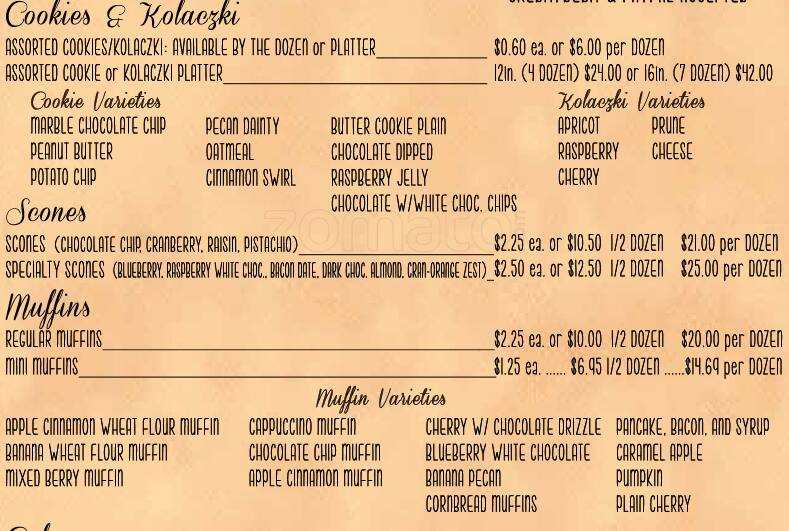 Cookies & Kolaczki
ASSORTED COOKIES/KOLACZKI: AVAILABLE BY THE DOZEN or PLATTER $0.60 ea. or $6.00 per DOZEN
ASSORTED COOKIE or KOLACZKI PLATTER 12in. (4 DOZEN) $24.00 or 16in. (7 DOZEN) $42.00
Cookie Varieties Kolaczki Varieties
MARBLE CHOCOLATE CHIP PECAN DAINTY BUTTER COOKIE PLAIN APRICOT PRUNE
PEANUT BUTTER OATMEAL CHOCOLATE DIPPED RASPBERRY CHEESE
POTATO CHIP CINNAMON SWIRL RASPBERRY JELLY CHERRY
CHOCOLATE W/WHITE CHOC. CHIPS
Scones
zomato
SCONES (CHOCOLATE CHIP, CRANBERRY, RAISIN, PISTACHIO) $2.25 ea. or $10.50 1/2 DOZEN $21.00 per DOZEN
SPECIALTY SCONES (BLUEBERRY, RASPBERRY WHITE CHOC., BACON DATE, DARK CHOC. ALMOND, CRAN-ORANGE ZEST) $2.50 ea. or $12.50 1/2 DOZEN $25.00 per DOZEN
Muffins
REGULAR MUFFINS $2.25 ea. or $10.00 1/2 DOZEN $20.00 per DOZEN
MINI MUFFINS $1.25 ea. ...... $6.95 1/2 DOZEN ......$14.69 per DOZEN
Muffin Varieties
APPLE CINNAMON WHEAT FLOUR MUFFIN CAPPUCCINO MUFFIN CHERRY W/ CHOCOLATE DRIZZLE PANCAKE, BACON, AND SYRUP
BANANA WHEAT FLOUR MUFFIN CHOCOLATE CHIP MUFFIN BLUEBERRY WHITE CHOCOLATE CARAMEL APPLE
MIXED BERRY MUFFIN APPLE CINNAMON MUFFIN BANANA PECAN PUMPKIN
CORNBREAD MUFFINS PLAIN CHERRY